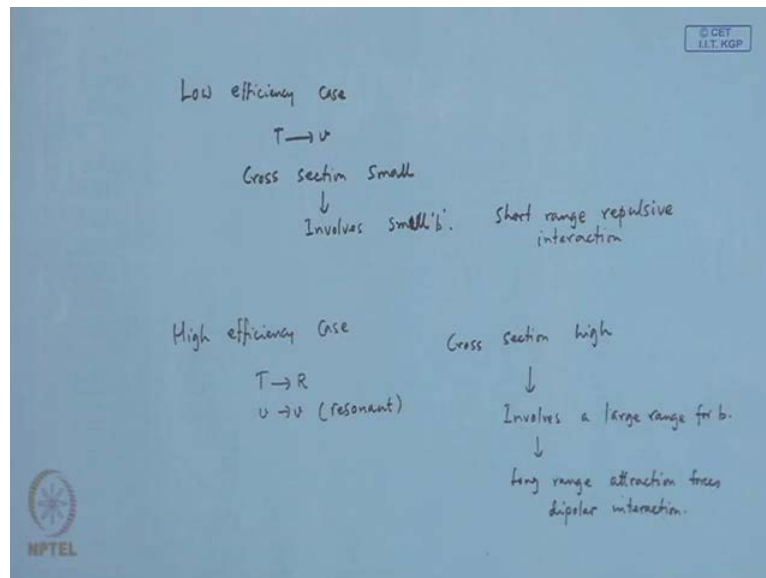 © CET
I.I.T. KGP
Low efficiency case
T → v
Cross section small
↓
Involves small 'b'. Short range repulsive
interaction
High efficiency case
Cross section high
T → R
↓
v → v (resonant)
Involves a large range for b.
↓
Long range attraction forces
dipolar interaction.
NPTEL